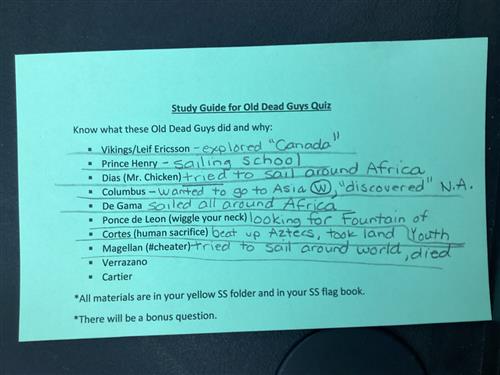 Study Guide for Old Dead Guys Quiz
Know what these Old Dead Guys did and why:
▪ Vikings/Leif Ericsson - explored "Canada"
▪ Prince Henry - sailing school
▪ Dias (Mr. Chicken) tried to sail around Africa
▪ Columbus - wanted to go to Asia W, "discovered" N.A.
▪ De Gama sailed all around Africa
▪ Ponce de Leon (wiggle your neck) looking for Fountain of Youth
▪ Cortes (human sacrifice) beat up Aztecs, took land
▪ Magellan (#cheater) tried to sail around world, died
▪ Verrazano
▪ Cartier
*All materials are in your yellow SS folder and in your SS flag book.
*There will be a bonus question.